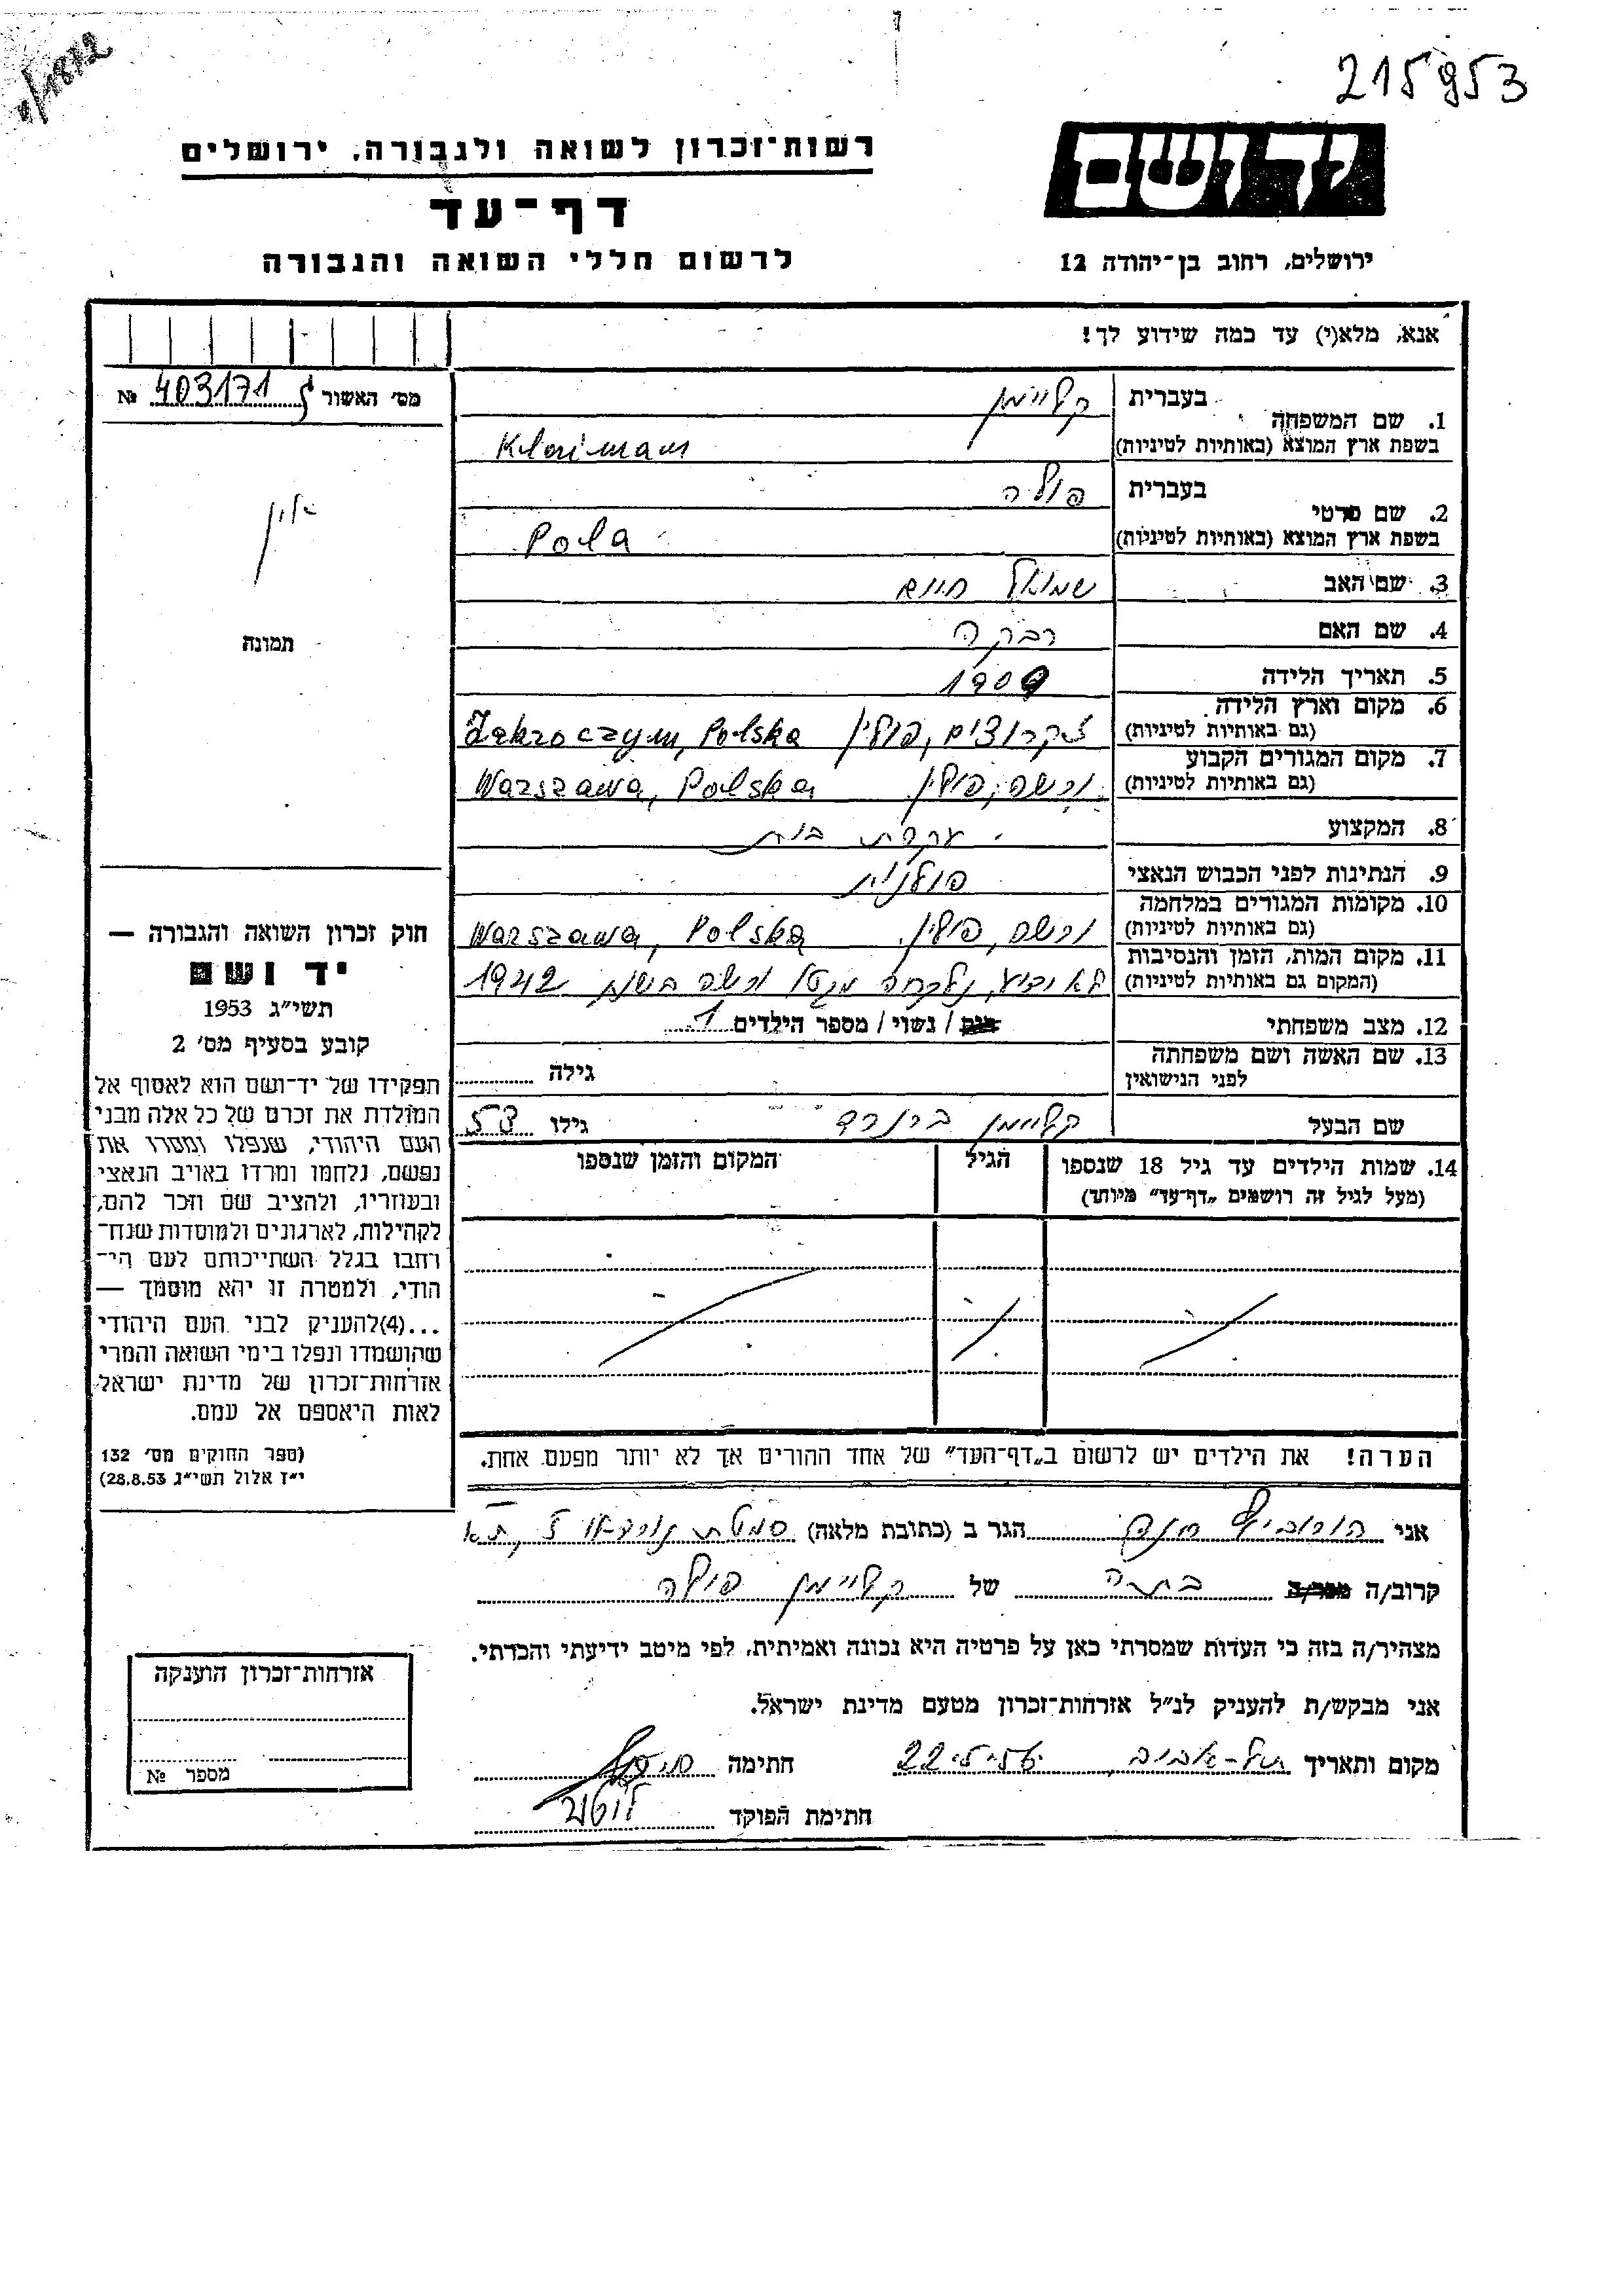 215953
רשות־זכרון לשואה ולגבורה, ירושלים
דף־עד
לרשום חללי השואה והגבורה
ידושם
ירושלים, רחוב בן־יהודה 12
אנא, מלא(י) עד כמה שידוע לך!
מס׳ האשור 403171 №
1. שם המשפחה
בעברית קליימן
בשפת ארץ המוצא (באותיות לטיניות)
2. שם פרטי
בעברית פולה
בשפת ארץ המוצא (באותיות לטיניות) Pola
3. שם האב שמואל חיים
4. שם האם רבקה
5. תאריך הלידה 1909
6. מקום וארץ הלידה
(גם באותיות לטיניות) זקרוצים, פולין Zakroczym, Polska
7. מקום המגורים הקבוע
(גם באותיות לטיניות) ורשה, פולין Warszawa, Polska
8. המקצוע עקרת בית
9. הנתינות לפני הכבוש הנאצי פולנית
10. מקומות המגורים במלחמה
(גם באותיות לטיניות) ורשה, פולין Warszawa, Polska
11. מקום המות, הזמן והנסיבות
(המקום גם באותיות לטיניות) לא ידוע, נלקחה מגטו ורשה בשנת 1942
12. מצב משפחתי / נשוי / מספר הילדים 1
13. שם האשה ושם משפחתה
לפני הנישואין גילה
שם הבעל קליימן ברנרד גילו 53
14. שמות הילדים עד גיל 18 שנספו
(מעל לגיל זה רושמים „דף־עד” מיוחד)
הגיל
המקום והזמן שנספו
הערה! את הילדים יש לרשום ב„דף־העד” של אחד ההורים אך לא יותר מפעם אחת.
תמונה
חוק זכרון השואה והגבורה —
יד ושם
תשי״ג 1953
קובע בסעיף מס׳ 2
תפקידו של יד־ושם הוא לאסוף אל
המולדת את זכרם של כל אלה מבני
העם היהודי, שנפלו ומסרו את
נפשם, נלחמו ומרדו באויב הנאצי
ובעוזריו, ולהציב שם וזכר להם,
לקהילות, לארגונים ולמוסדות שנח־
רחבו בגלל השתייכותם לעם הי־
הודי, ולמטרה זו יהא מוסמך —
...(4)להעניק לבני העם היהודי
שהושמדו ונפלו בימי השואה והמרי
אזרחות־זכרון של מדינת ישראל
לאות היאספם אל עמם.
(ספר החוקים מס׳ 132
י״ז אלול תשי״ג 28.8.53)
אני הורוביץ הגר ב (כתובת מלאה) סמטת
קרוב/ה בתה של קליימן פולה
מצהיר/ה בזה כי העדות שמסרתי כאן על פרטיה היא נכונה ואמיתית, לפי מיטב ידיעתי והכרתי.
אני מבקש/ת להעניק לנ״ל אזרחות־זכרון מטעם מדינת ישראל.
מקום ותאריך תל-אביב, חתימה
חתימת הפוקד
אזרחות־זכרון הוענקה
מספר №